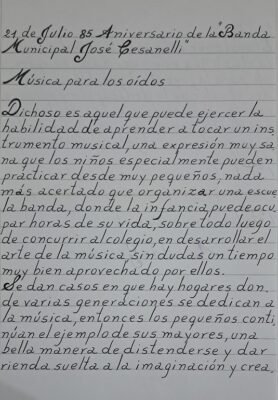 21 de Julio 85 Aniversario de la "Banda
Municipal José Cesanelli"
Música para los oídos
Dichoso es aquel que puede ejercer la
habilidad de aprender a tocar un ins
trumento musical, una expresión muy sa
na que los niños especialmente pueden
practicar desde muy pequeños, nada
más acertado que organizar una escue
la banda, donde la infancia puede ocu
par horas de su vida, sobre todo luego
de concurrir al colegio, en desarrollar el
arte de la música, sin dudas un tiempo
muy bien aprovechado por ellos.
Se dan casos en que hay hogares don
de varias generaciones se dedican a
la música, entonces los pequeños conti
núan el ejemplo de sus mayores, una
bella manera de distenderse y dar
rienda suelta a la imaginación y crea